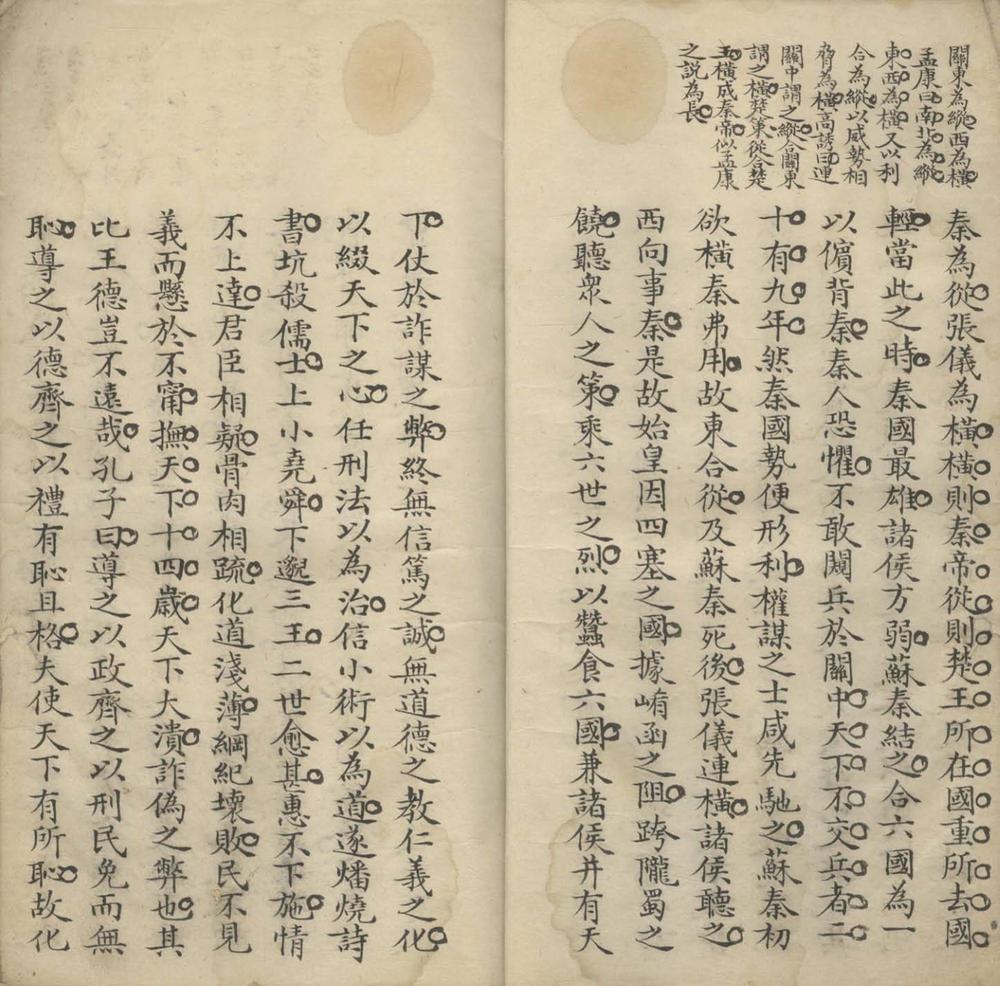 關東為縱西為橫
孟康曰南北為縱
東西為橫又以利
合為縱以威勢相
脅為橫高誘曰連
關中謂之縱合關東
謂之橫楚策從合楚
王橫成秦帝似孟康
之説為長
秦為從張儀為橫橫則秦帝從則楚王所在國重所去國
輕當此之時秦國最雄諸侯方弱蘇秦結之合六國為一
以儐背秦秦人恐懼不敢闚兵於關中天下不交兵者二
十有九年然秦國勢便形利權謀之士咸先馳之蘇秦初
欲橫秦弗用故東合從及蘇秦死後張儀連橫諸侯聽之
西向事秦是故始皇因四塞之國據崤函之阻跨隴蜀之
饒聽眾人之策乘六世之烈以蠶食六國兼諸侯并有天
下仗於詐謀之弊終無信篤之誠無道德之教仁義之化
以綴天下之心任刑法以為治信小術以為道遂燔燒詩
書坑殺儒士上小堯舜下邈三王二世愈甚惠不下施情
不上達君臣相疑骨肉相疏化道淺薄綱紀壞敗民不見
義而懸於不甯撫天下十四歲天下大潰詐偽之弊也其
比王德豈不遠哉孔子曰導之以政齊之以刑民免而無
恥導之以德齊之以禮有恥且格夫使天下有所恥故化